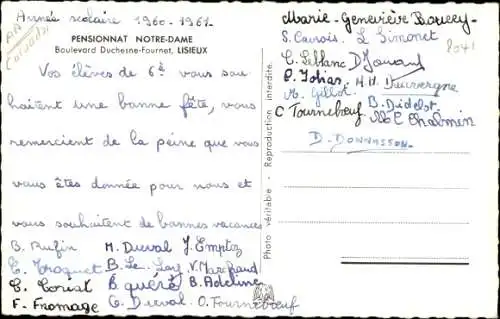 Année scolaire 1960-1961.
PENSIONNAT NOTRE-DAME
Boulevard Duchesne-Fournet, LISIEUX
Vos élèves de 6è vous sou-
haitent une bonne fête, vous
remercient de la peine que vous
vous êtes donnée pour nous et
vous souhaitent de bonnes vacances
B. Rufin M. Duval J. Emptoz
C. Troquet B. Le V. Marchand
C. Toriat B. Quéré B. Adeline
F. Fromage C. Duval O. Tournebœuf
Photo véritable - Reproduction interdite.
Marie-Geneviève Boucey-
S. L. Simonet
C. Leblanc D. Jouand
M.H. Dauvergne
M. Gillot B. Didelot
C Tournebœuf M.C Chalmin
D. DONNASSON-